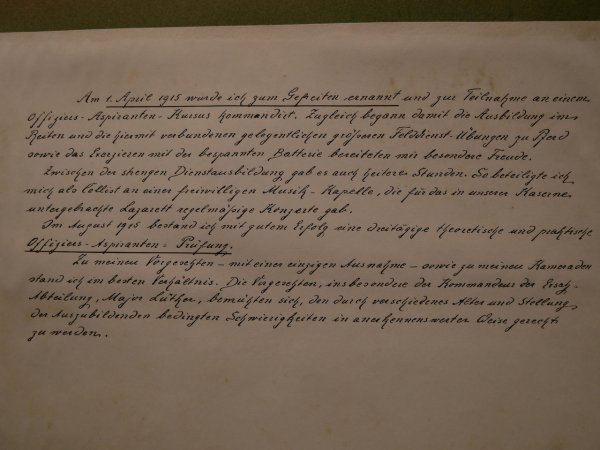 Am 1. April 1915 wurde ich zum Gefreiten ernannt und zur Teilnahme an einem
Offiziers-Aspiranten-Kursus kommandirt. Zugleich begann damit die Ausbildung im
Reiten und die hiermit verbundenen gelegentlichen größeren Felddienst-Übungen zu Pferd
sowie das Exerzieren mit der bespannten Batterie bereiteten mir besondere Freude.
Zwischen der strengen Dienstausbildung gab es auch heitere Stunden. So beteiligte ich
mich als Cellist an einer freiwilligen Musik-Kapelle, die für das in unserer Kaserne
untergebrachte Lazarett regelmäßige Konzerte gab.
Im August 1915 bestand ich mit gutem Erfolg eine dreitägige theoretische und praktische
Offiziers-Aspiranten-Prüfung.
Zu meinen Vorgesetzten - mit einer einzigen Ausnahme - sowie zu meinen Kameraden
stand ich im besten Verhältnis. Die Vorgesetzten, insbesondere der Kommandeur der Ersatz-
Abteilung, Major Luther, bemühten sich, den durch verschiedenes Alter und Stellung
der Auszubildenden bedingten Schwierigkeiten in anerkennenswerter Weise gerecht
zu werden.